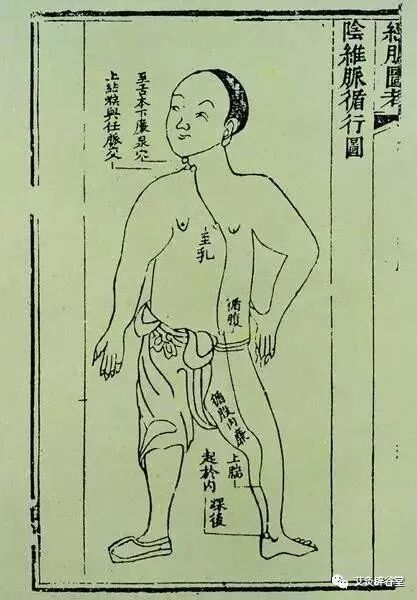 經脈圖考
陰維脈循行圖
至舌本下廉泉穴
上結喉與任脈交
至乳
循腹
循股內廉
上腨
起於內踝後
艾灸辟谷堂